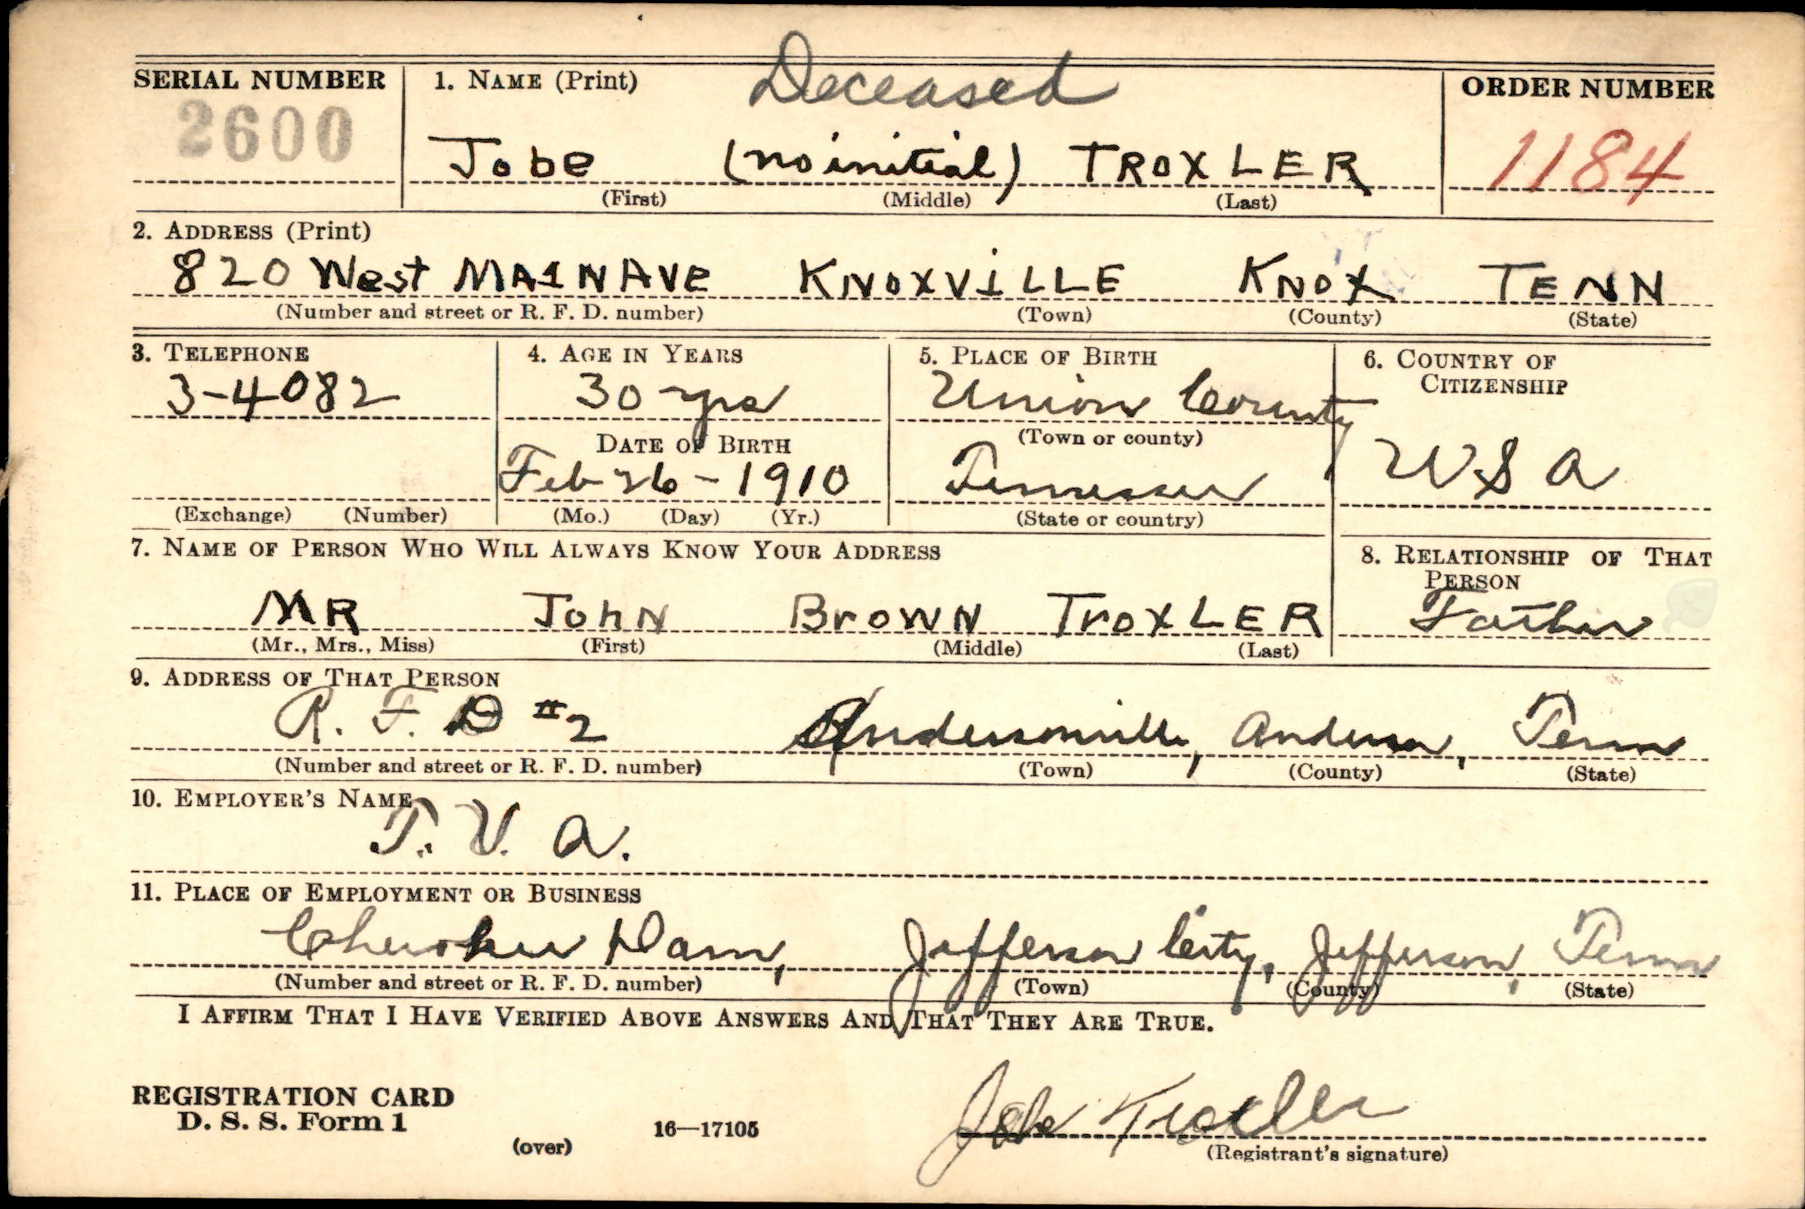 Deceased
SERIAL NUMBER 1. NAME (Print) ORDER NUMBER
2600 Jobe (no initial) TROXLER 1184
(First) (Middle) (Last)
2. ADDRESS (Print)
820 West MAIN AVE KNOXVILLE KNOX TENN
(Number and street or R. F. D. number) (Town) (County) (State)
3. TELEPHONE 4. AGE IN YEARS 5. PLACE OF BIRTH 6. COUNTRY OF CITIZENSHIP
3-4082 30 yrs Union County
DATE OF BIRTH (Town or county)
Feb 26-1910 Tennessee USA
(Exchange) (Number) (Mo.) (Day) (Yr.) (State or country)
7. NAME OF PERSON WHO WILL ALWAYS KNOW YOUR ADDRESS 8. RELATIONSHIP OF THAT PERSON
MR JOHN BROWN TROXLER Father
(Mr., Mrs., Miss) (First) (Middle) (Last)
9. ADDRESS OF THAT PERSON
R. F. D #2 Andersonville, Anderson, Tenn
(Number and street or R. F. D. number) (Town) (County) (State)
10. EMPLOYER'S NAME
T. V. A.
11. PLACE OF EMPLOYMENT OR BUSINESS
Cherokee Dam, Jefferson City, Jefferson, Tenn
(Number and street or R. F. D. number) (Town) (County) (State)
I AFFIRM THAT I HAVE VERIFIED ABOVE ANSWERS AND THAT THEY ARE TRUE.
REGISTRATION CARD
D. S. S. Form 1 (over) 16—17105 Jobe Troxler
(Registrant's signature)